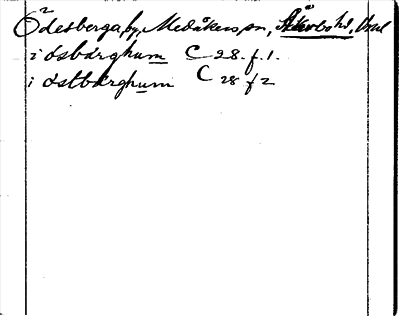 Ödesberga, by, Medåkers sn, Åkerbo hd, Vsml
i ôsbärghum C 28. f. 1.
i ôstbärghum C 28 f 2